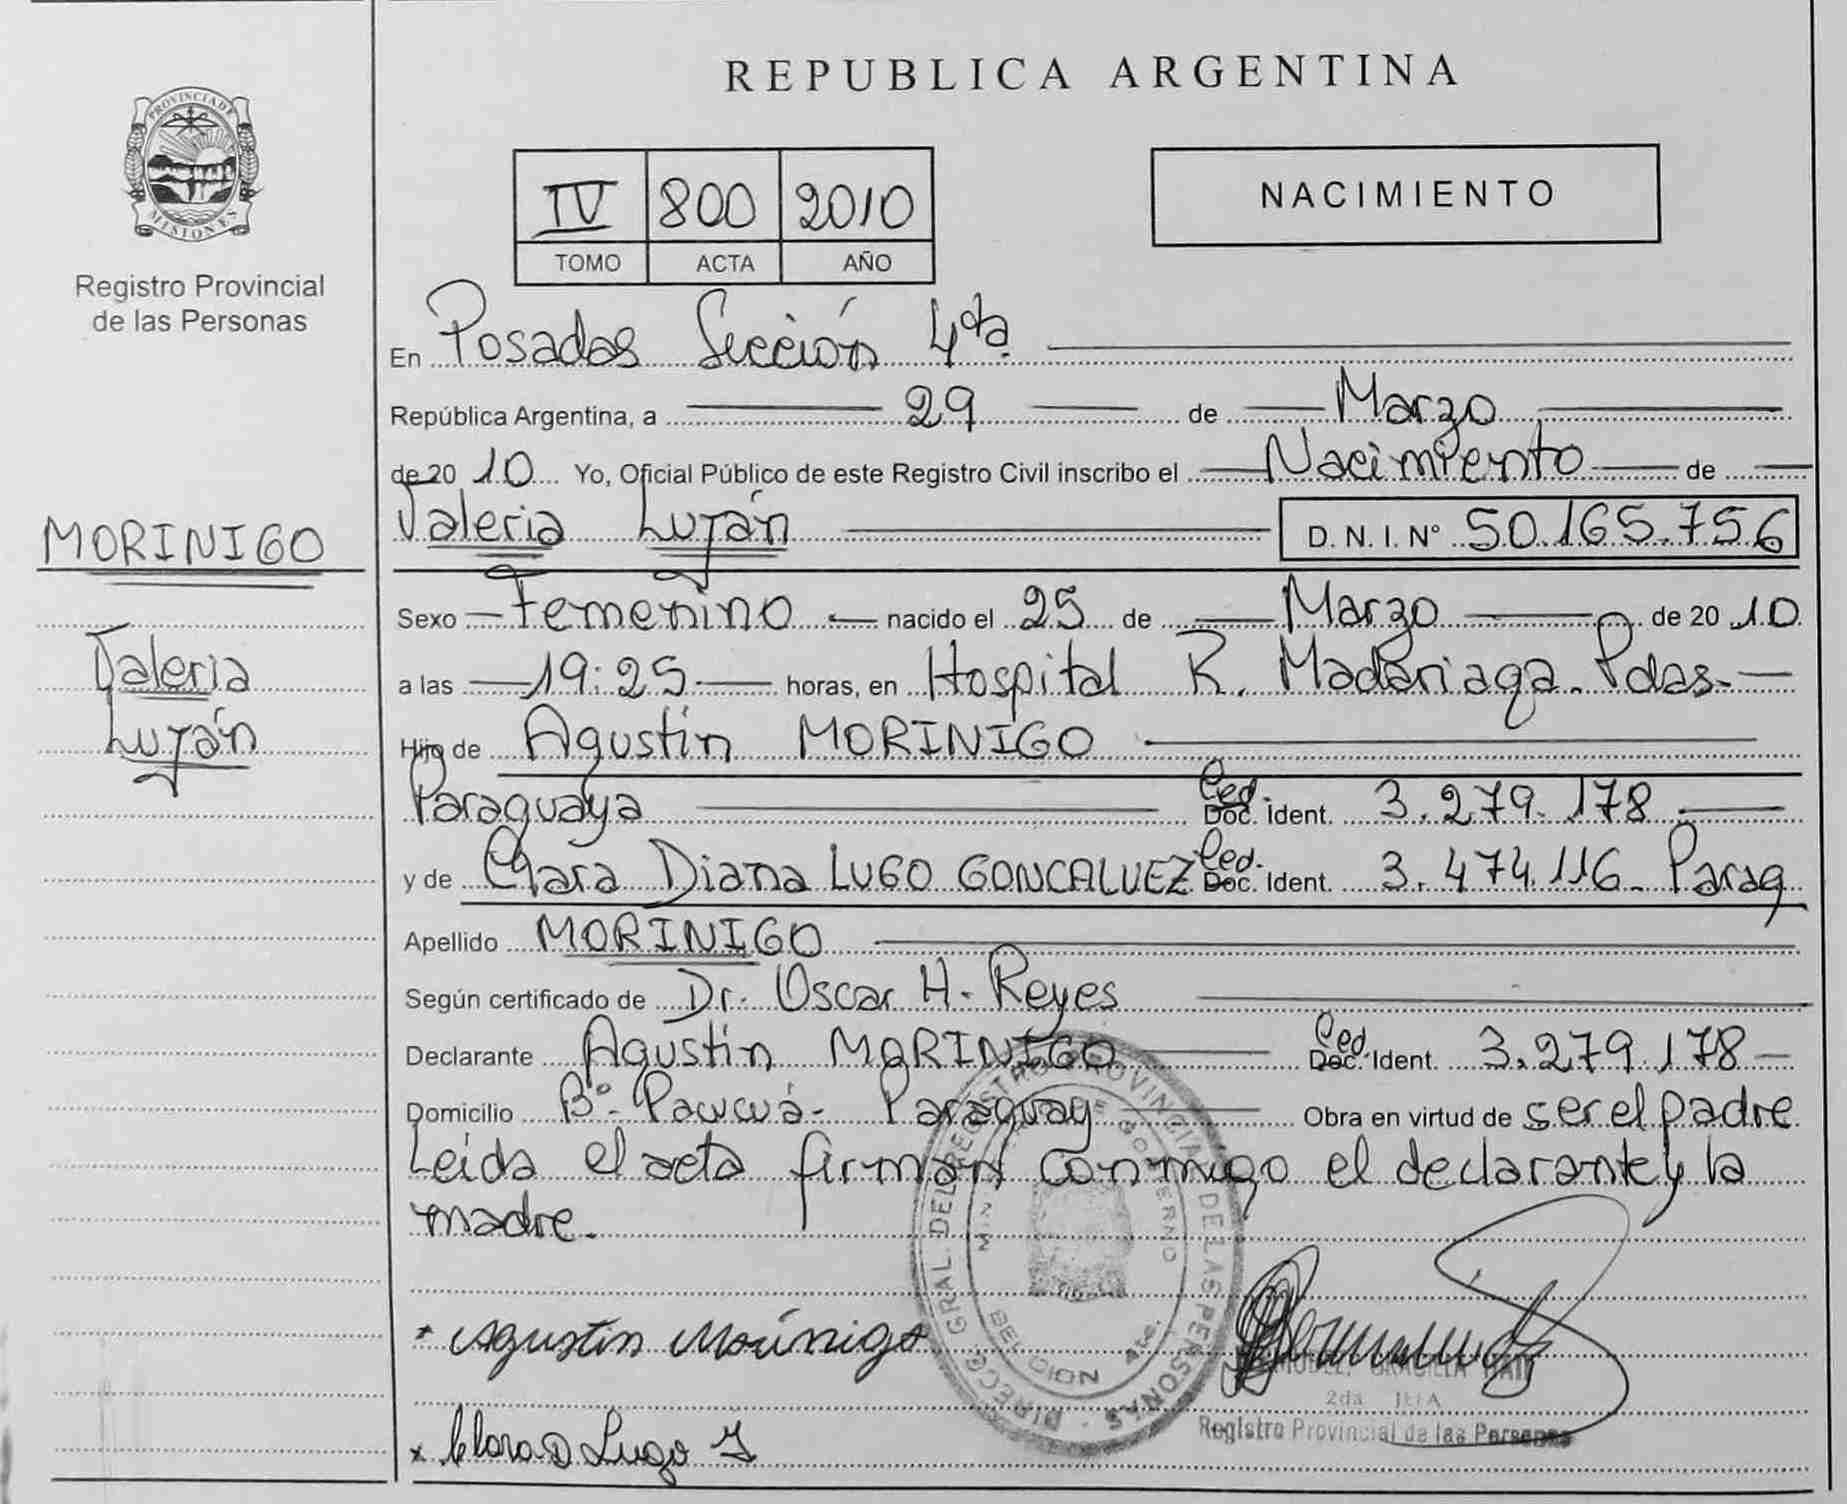 PROVINCIA DE
MISIONES
Registro Provincial
de las Personas
MORINIGO
Valeria
Luján
REPUBLICA ARGENTINA
IV 800 2010
TOMO ACTA AÑO
NACIMIENTO
En Posadas Sección 4da.
República Argentina, a 29 de Marzo
de 20 10 Yo, Oficial Público de este Registro Civil inscribo el Nacimiento de
Valeria Luján D.N.I. Nº 50.165.756
Sexo Femenino nacido el 25 de Marzo de 20 10
a las 19:25 horas, en Hospital R. Madariaga. Pdas.
Hijo de Agustin MORINIGO
Paraguaya Ced. Doc. Ident. 3.279.178
y de Clara Diana LUGO GONCALVEZ Ced. Doc. Ident. 3.474.116. Parag
Apellido MORINIGO
Según certificado de Dr. Oscar H. Reyes
Declarante Agustin MORINIGO Ced. Doc. Ident. 3.279.178
Domicilio Bº. Pacucuá - Paraguay Obra en virtud de ser el padre
Leida el acta firman conmigo el declarante y la
madre.
DIRECC. GRAL. DEL REGISTRO PROVINCIAL DE LAS PERSONAS
GOBIERNO
* Agustin Morinigo
2da
Registro Provincial de las Personas
x Clara D Lugo G